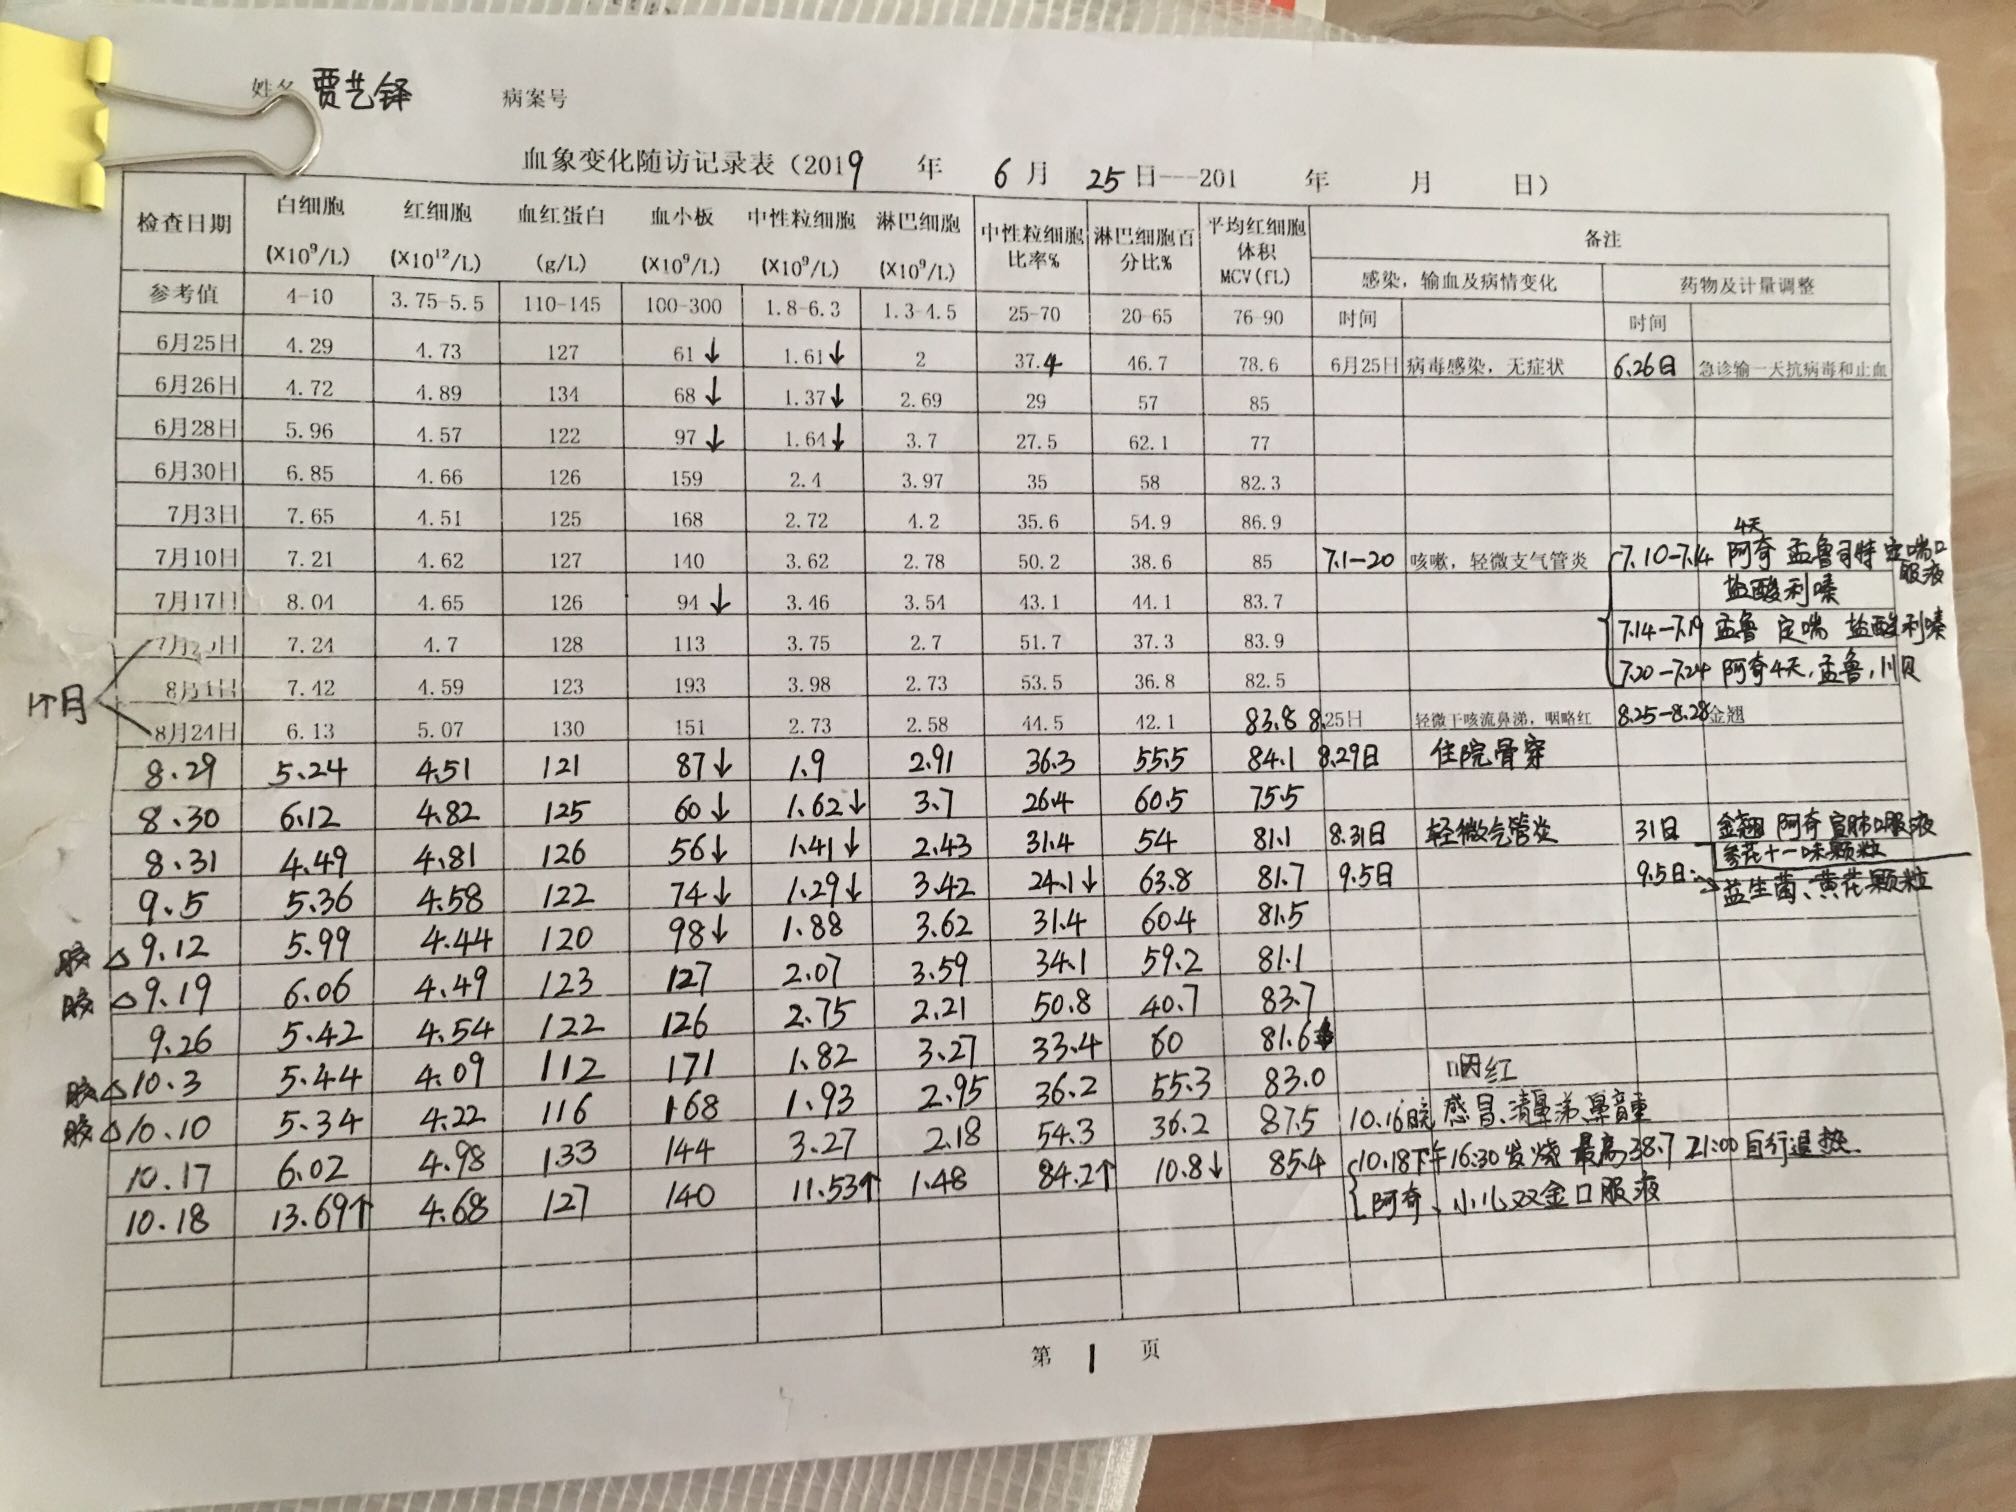 姓名 贾艺铎 病案号
血象变化随访记录表（2019 年 6 月 25 日---201 年 月 日）
检查日期 白细胞 (X10⁹/L) 红细胞 (X10¹²/L) 血红蛋白 (g/L) 血小板 (X10⁹/L) 中性粒细胞 (X10⁹/L) 淋巴细胞 (X10⁹/L) 中性粒细胞比率% 淋巴细胞百分比% 平均红细胞体积 MCV(fL) 备注
感染，输血及病情变化 药物及计量调整
参考值 4-10 3.75-5.5 110-145 100-300 1.8-6.3 1.3-4.5 25-70 20-65 76-90 时间 时间
6月25日 4.29 4.73 127 61↓ 1.61↓ 2 37.4 46.7 78.6 6月25日 病毒感染，无症状 6.26日 急诊输一天抗病毒和止血
6月26日 4.72 4.89 134 68↓ 1.37↓ 2.69 29 57 85
6月28日 5.96 4.57 122 97↓ 1.64↓ 3.7 27.5 62.1 77
6月30日 6.85 4.66 126 159 2.4 3.97 35 58 82.3
7月3日 7.65 4.51 125 168 2.72 4.2 35.6 54.9 86.9
4天
7月10日 7.21 4.62 127 140 3.62 2.78 50.2 38.6 85 7.1-20 咳嗽，轻微支气管炎 7.10-7.14 阿奇 孟鲁司特 定喘口服液
盐酸利嗪
7月17日 8.04 4.65 126 94↓ 3.46 3.54 43.1 44.1 83.7
7.14-7.19 孟鲁 定喘 盐酸利嗪
7月2 日 7.24 4.7 128 113 3.75 2.7 51.7 37.3 83.9
7.20-7.24 阿奇4天，孟鲁，川贝
1个月
8月1日 7.42 4.59 123 193 3.98 2.73 53.5 36.8 82.5
8月24日 6.13 5.07 130 151 2.73 2.58 44.5 42.1 83.8 8.25日 轻微干咳流鼻涕，咽略红 8.25-8.28 金翘
8.29 5.24 4.51 121 87↓ 1.9 2.91 36.3 55.5 84.1 8.29日 住院骨穿
8.30 6.12 4.82 125 60↓ 1.62↓ 3.7 26.4 60.5 75.5
8.31 4.49 4.81 126 56↓ 1.41↓ 2.43 31.4 54 81.1 8.31日 轻微气管炎 31日 金翘 阿奇 宣肺口服液
参芪十一味颗粒
9.5 5.36 4.58 122 74↓ 1.29↓ 3.42 24.1↓ 63.8 81.7 9.5日 9.5日 益生菌、黄芪颗粒
胶 △9.12 5.99 4.44 120 98↓ 1.88 3.62 31.4 60.4 81.5
胶 △9.19 6.06 4.49 123 127 2.07 3.59 34.1 59.2 81.1
9.26 5.42 4.54 122 126 2.75 2.21 50.8 40.7 83.7
胶 △10.3 5.44 4.09 112 171 1.82 3.27 33.4 60 81.6
胶 △10.10 5.34 4.22 116 168 1.93 2.95 36.2 55.3 83.0
咽红
10.17 6.02 4.98 133 144 3.27 2.18 54.3 36.2 87.5 10.16晚 感冒、清鼻涕、鼻音重
10.18 13.69↑ 4.68 127 140 11.53↑ 1.48 84.2↑ 10.8↓ 85.4 10.18下午16:30发烧 最高38.7 21:00自行退热
阿奇、小儿双金口服液
第 1 页